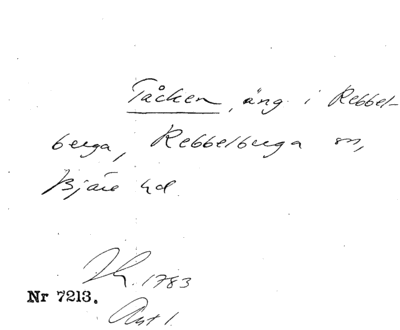 Tåcken, äng i Rebbel-
berga, Rebbelberga sn,
Bjäre hd
Lh. 1783
Nr 7213.
Akt 1.